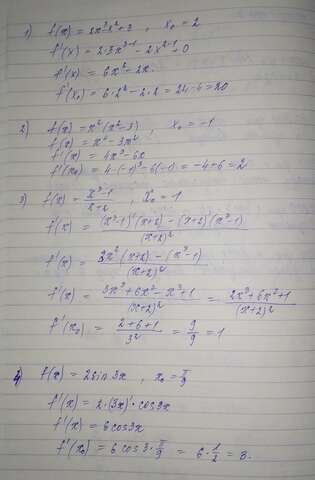 1) f(x) = 2x³-x²+3 , x₀ = 2
f'(x) = 2·3x³⁻¹ - 2x²⁻¹ + 0
f'(x) = 6x² - 2x
f'(x₀) = 6·2² - 2·2 = 24-4 = 20
2) f(x) = x²(x²-3) , x₀ = -1
f(x) = x⁴ - 3x²
f'(x) = 4x³ - 6x
f'(x₀) = 4·(-1)³ - 6(-1) = -4+6 = 2
3) f(x) = (x³-1)/(x+2) , x₀ = 1
f'(x) = ((x³-1)'(x+2) - (x+2)'(x³-1))/(x+2)²
f'(x) = (3x²(x+2) - (x³-1))/(x+2)²
f'(x) = (3x³+6x²-x³+1)/(x+2)² = (2x³+6x²+1)/(x+2)²
f'(x₀) = (2+6+1)/3² = 9/9 = 1
4) f(x) = 2sin3x , x₀ = π/9
f'(x) = 2·(3x)'·cos3x
f'(x) = 6cos3x
f'(x₀) = 6cos3·π/9 = 6·1/2 = 3.